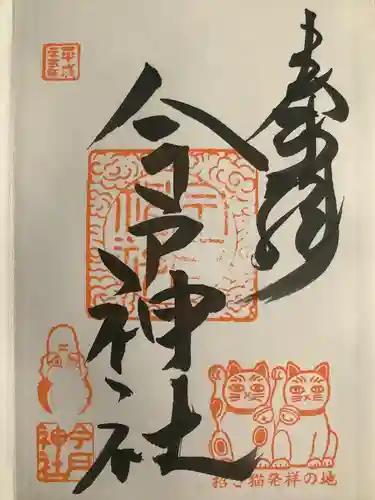 奉拝
今戸神社
今戸
神社
招き猫発祥の地